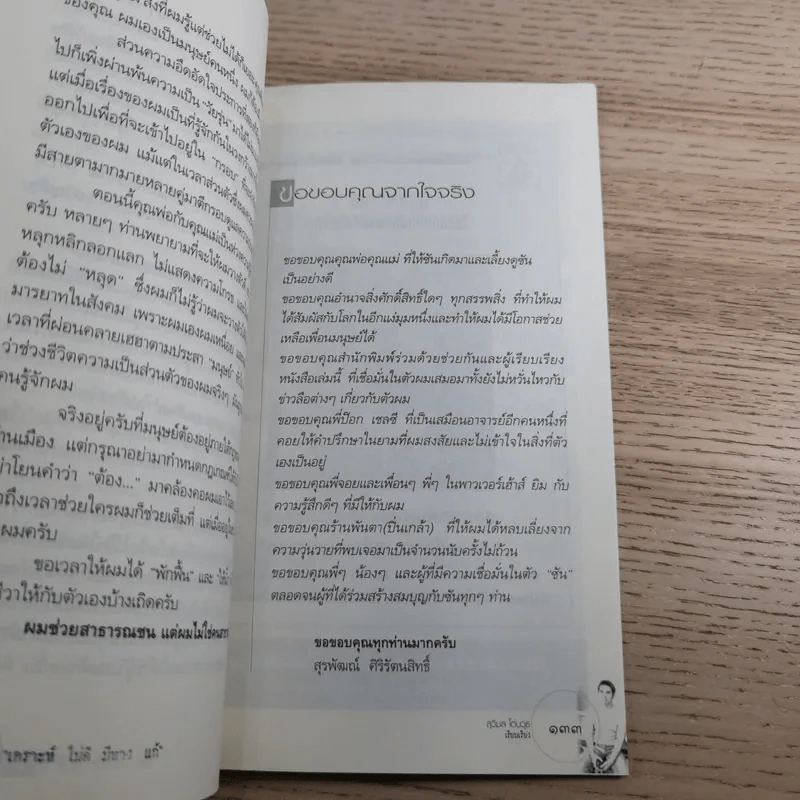 สิ่งที่ผมรู้แต่ช่วยไม่ได้ก็
ของคุณ ผมเองเป็นมนุษย์คนหนึ่ง
ส่วนความอึดอัดใจประการ
ไปก็เพิ่งผ่านพ้นความเป็น "วัยรุ่น" มาได้
แต่เมื่อเรื่องของผมเป็นที่รู้จักกันใน
ออกไปเพื่อที่จะเข้าไปอยู่ใน "กรอบ"
ตัวเองของผม แม้แต่ในเวลาส่วนตัว
มีสายตามากมายหลายคู่มาตีกรอบ
ตอนนี้คุณพ่อกับคุณแม่
ครับ หลายๆ ท่านพยายามที่จะให้ผม
หลุกหลิกลอกแลก ไม่แสดงความโกรธ
ต้องไม่ "หลุด" ซึ่งผมก็ไม่รู้ว่าผมจะ
มารยาทในสังคม เพราะผมเองผมเหนื่อย
เวลาที่ผ่อนคลายเฮฮาตามประสา "มนุษย์"
ว่าช่วงชีวิตความเป็นส่วนตัวของผมจริงๆ
คนรู้จักผม
จริงอยู่ครับที่มนุษย์ต้องอยู่ภายใต้
านเมือง แต่กรุณาอย่ามากำหนดกฎเกณฑ์
ย่าโยนคำว่า "ต้อง..." มาคล้องคอผม
ถึงเวลาช่วยใครผมก็ช่วยเต็มที่ แต่เมื่อ
ผมครับ
ขอเวลาให้ผมได้ "พักฟื้น" และ
ให้กับตัวเองบ้างเถิดครับ
ผมช่วยสาธารณชน แต่ผมไม่ใช่
เคราะห์ ไม่ดี มีทาง แก้"
ขอขอบคุณจากใจจริง
ขอขอบคุณคุณพ่อคุณแม่ ที่ให้ซันเกิดมาและเลี้ยงดูซัน
เป็นอย่างดี
ขอขอบคุณอำนาจสิ่งศักดิ์สิทธิ์ใดๆ ทุกสรรพสิ่ง ที่ทำให้ผม
ได้สัมผัสกับโลกในอีกแง่มุมหนึ่งและทำให้ผมได้มีโอกาสช่วย
เหลือเพื่อนมนุษย์ได้
ขอขอบคุณสำนักพิมพ์ร่วมด้วยช่วยกันและผู้เรียบเรียง
หนังสือเล่มนี้ ที่เชื่อมั่นในตัวผมเสมอมาทั้งยังไม่หวั่นไหวกับ
ข่าวลือต่างๆ เกี่ยวกับตัวผม
ขอขอบคุณพี่ป๊อก เชลซี ที่เป็นเสมือนอาจารย์อีกคนหนึ่งที่
คอยให้คำปรึกษาในยามที่ผมสงสัยและไม่เข้าใจในสิ่งที่ตัว
เองเป็นอยู่
ขอขอบคุณพี่จอยและเพื่อนๆ พี่ๆ ในพาวเวอร์เฮ้าส์ ยิม กับ
ความรู้สึกดีๆ ที่มีให้กับผม
ขอขอบคุณร้านพันตา(ปิ่นเกล้า) ที่ให้ผมได้หลบเลี่ยงจาก
ความวุ่นวายที่พบเจอมาเป็นจำนวนนับครั้งไม่ถ้วน
ขอขอบคุณพี่ๆ น้องๆ และผู้ที่มีความเชื่อมั่นในตัว "ซัน"
ตลอดจนผู้ที่ได้ร่วมสร้างสมบุญกับซันทุกๆ ท่าน
ขอขอบคุณทุกท่านมากครับ
สุรพัฒณ์ ศิริรัตนสิทธิ์
สุวิมล
เรียบเรียง
๑๓๓